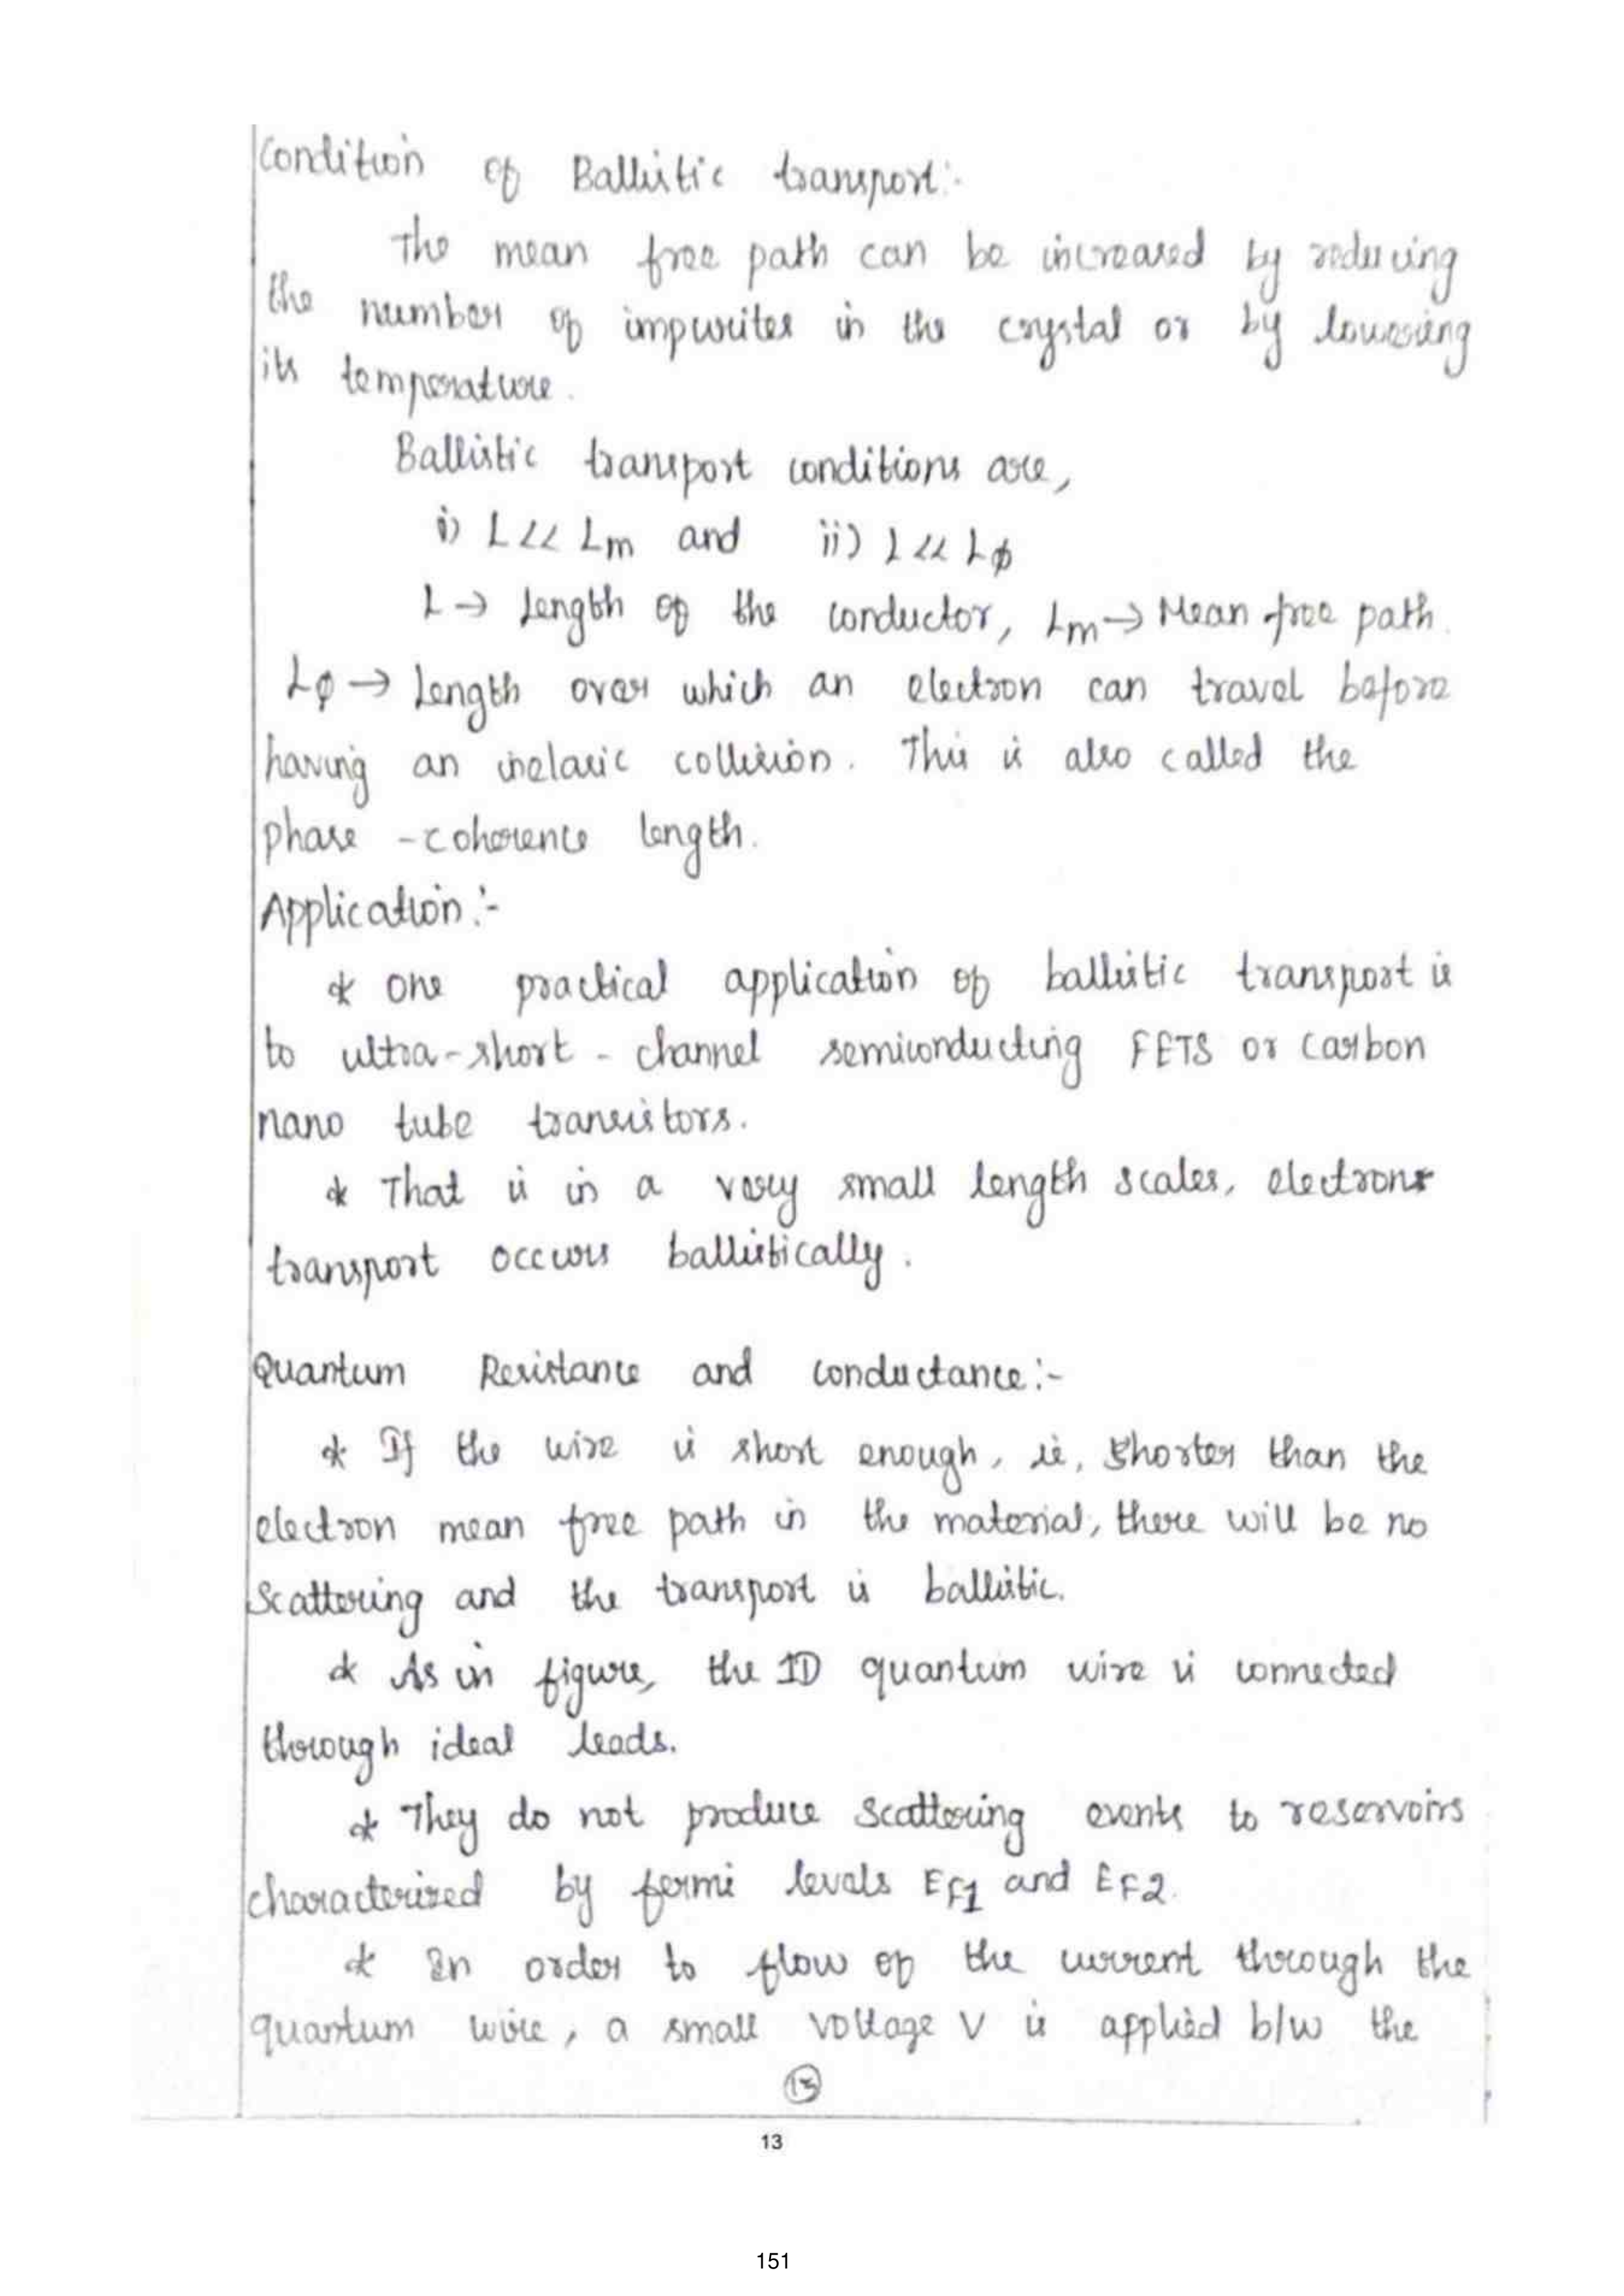 Condition of Ballistic transport:-
The mean free path can be increased by reducing
the number of impurites in the crystal or by lowering
its temperature.
Ballistic transport conditions are,
i) L << Lm and ii) L << Lφ
L → Length of the conductor, Lm → Mean free path.
Lφ → Length over which an electron can travel before
having an inelasic collision. This is also called the
phase - coherence length.
Application:-
* One practical application of ballistic transport is
to ultra-short - channel semiconducting FETS or Carbon
nano tube transistors.
* That is in a very small length scales, electrons
transport occurs ballistically.
Quantum Resistance and conductance:-
* If the wire is short enough, ie, shorter than the
electron mean free path in the material, there will be no
Scattering and the transport is ballistic.
* As in figure, the 1D quantum wire is connected
through ideal leads.
* They do not produce scattering events to reservoirs
characterized by fermi levels EF1 and EF2.
* In order to flow of the current through the
quantum wire, a small voltage V is applied b/w the
13
13
151